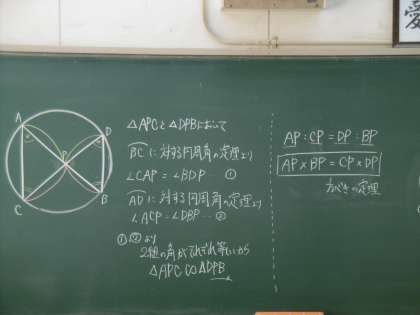 A
D
P
C
B
△APCと△DPBにおいて
BCに対する円周角の定理より
∠CAP=∠BDP…①
ADに対する円周角の定理より
∠ACP=∠DBP…②
①,②より
2組の角がそれぞれ等しいから
△APC∽△DPB
AP:CP=DP:BP
AP×BP=CP×DP
方べきの定理
愛